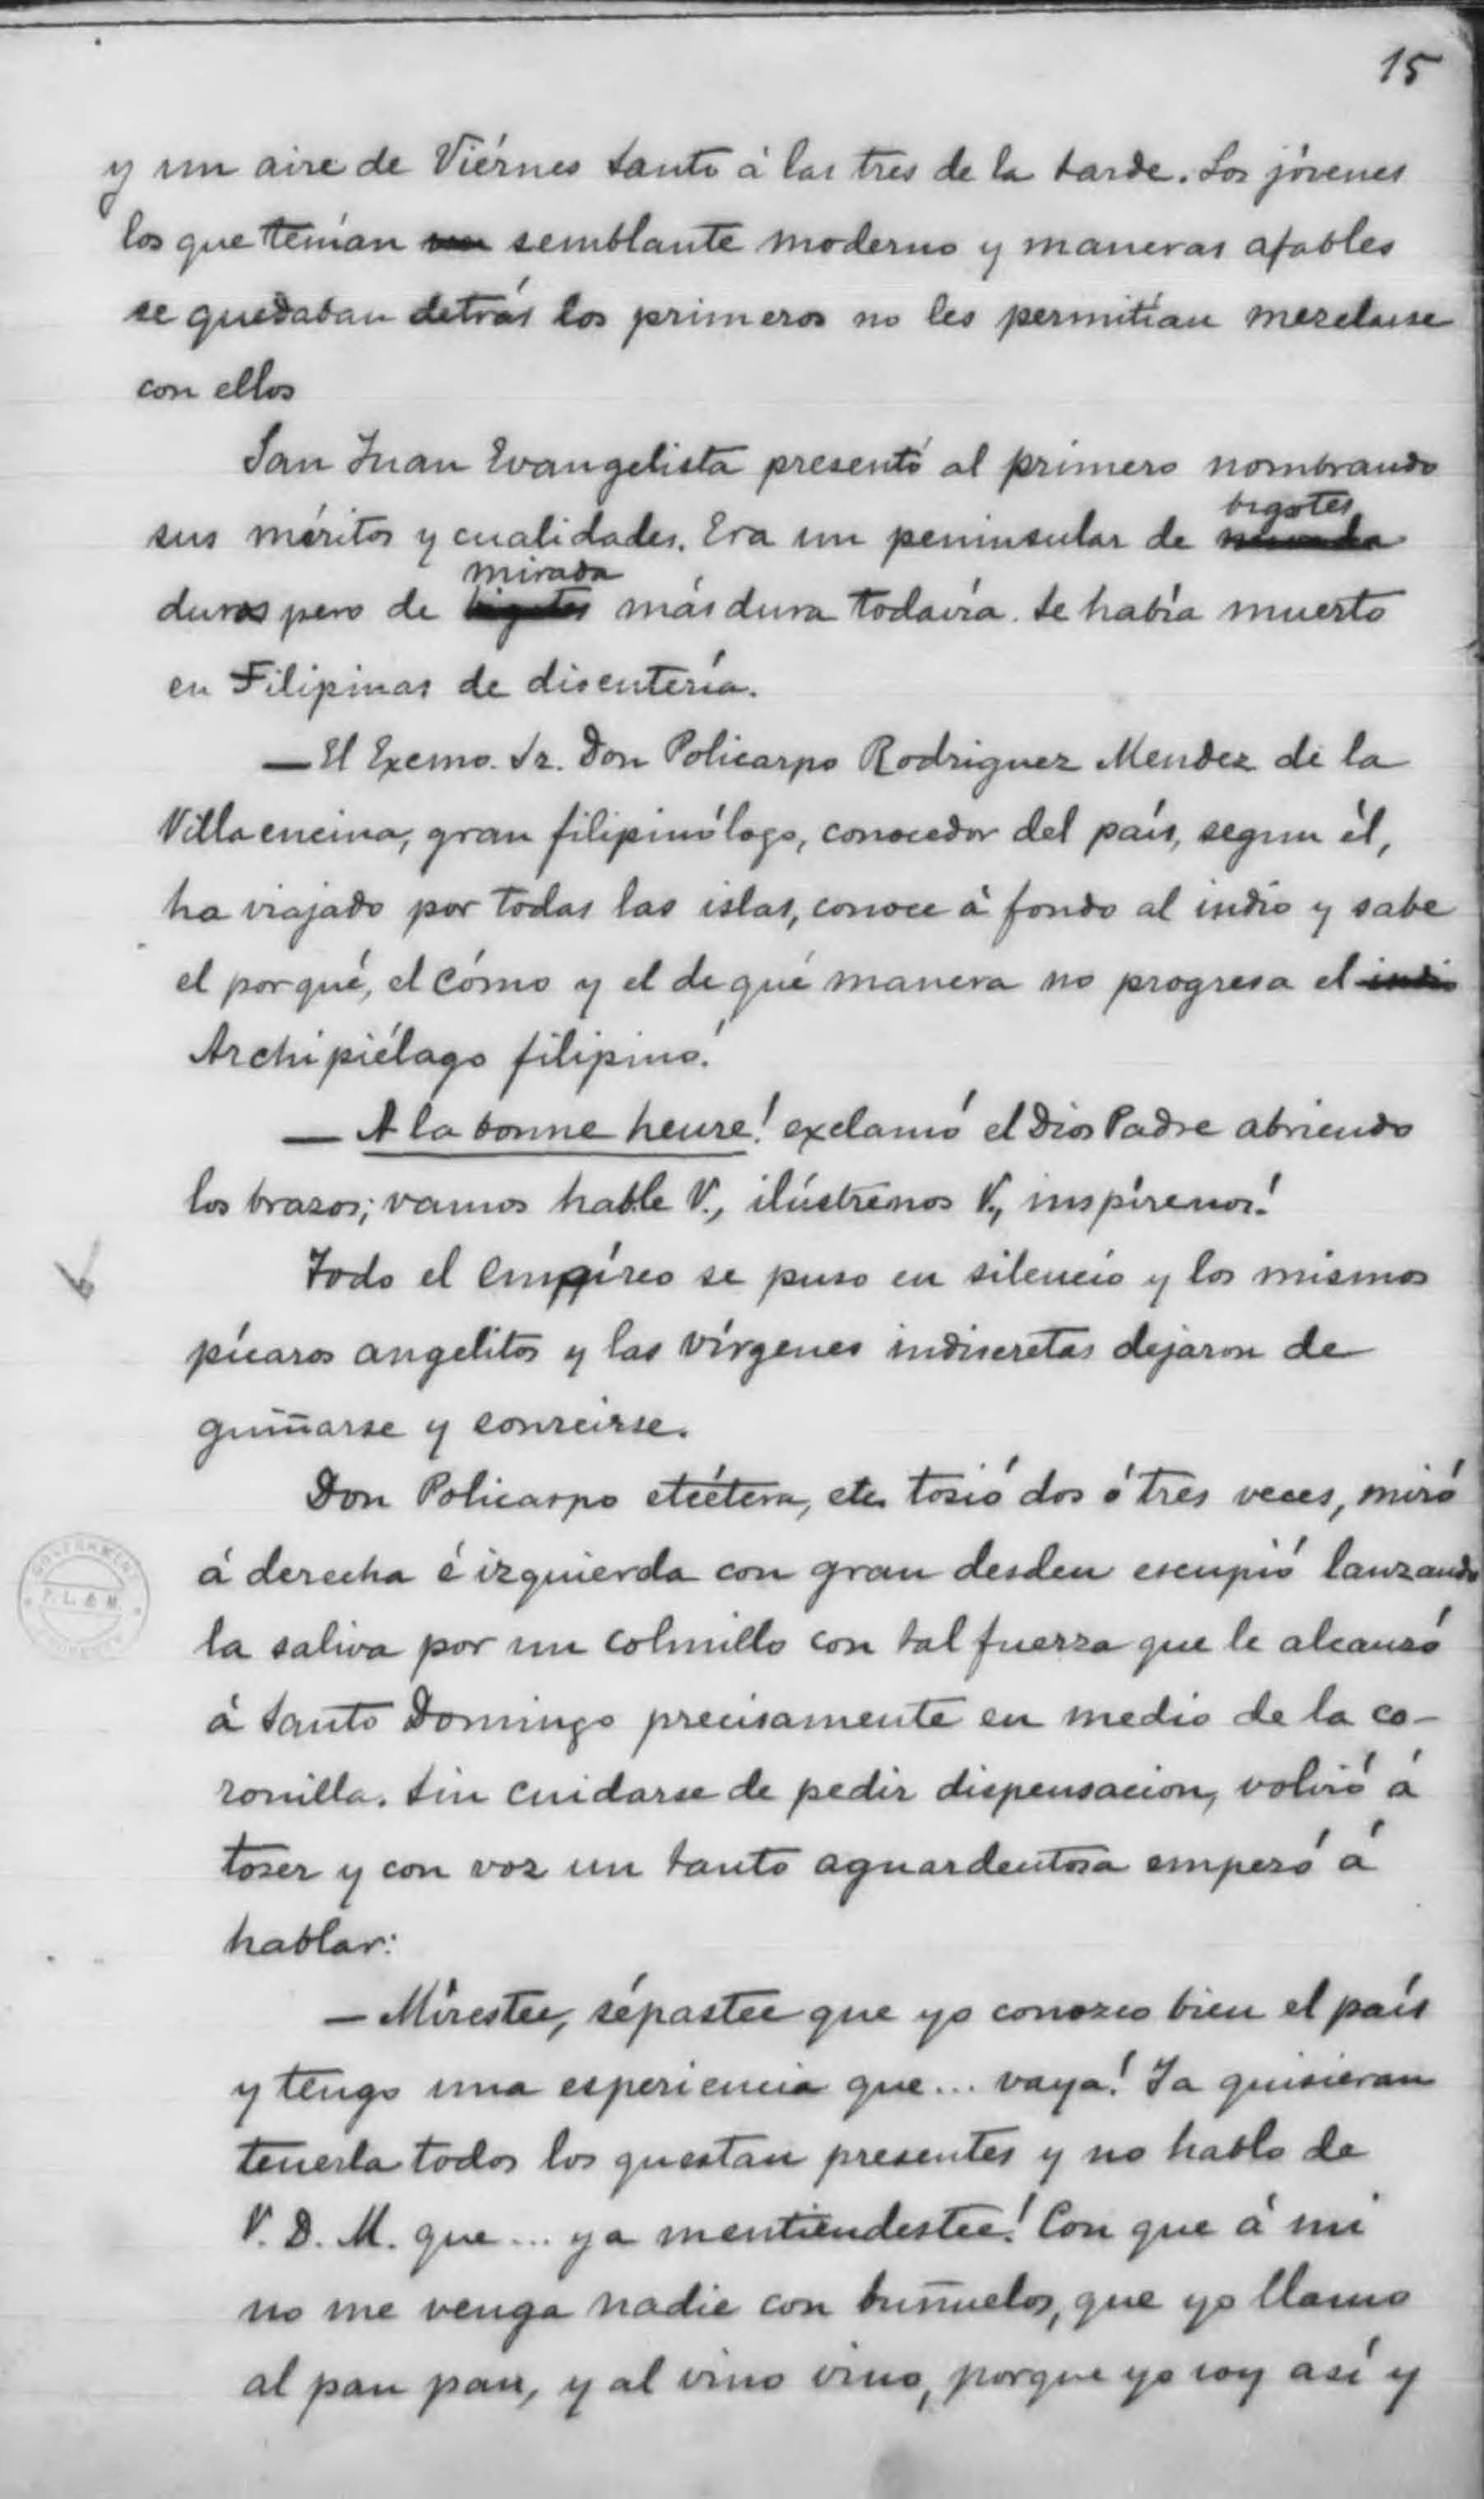 15
y un aire de Viérnes Santo á las tres de la tarde. Los jóvenes
los que tenían un semblante moderno y maneras afables
se quedaban detrás los primeros no les permitían mezclarse
con ellos
San Juan Evangelista presentó al primero nombrando
bigotes
sus méritos y cualidades. Era un peninsular de mirada
mirada
duros pero de bigotes más dura todavía. Se había muerto
en Filipinas de disentería.
— El Excmo. Sr. Don Policarpo Rodriguez Mendez de la
Villaencina, gran filipinólogo, conocedor del país, segun él,
ha viajado por todas las islas, conoce á fondo al indio y sabe
el por qué, el cómo y el de qué manera no progresa el indio
Archipiélago filipino!
— A la bonne heure! exclamó el Dios Padre abriendo
los brazos; vamos hable V., ilústrenos V., inspírenos!
Todo el empíreo se puso en silencio y los mismos
pícaros angelitos y las vírgenes indiscretas dejaron de
guiñarse y sonreirse.
Don Policarpo etcétera, etc. tosió dos ó tres veces, miró
á derecha é izquierda con gran desden escupió lanzando
la saliva por un colmillo con tal fuerza que le alcanzó
á Santo Domingo precisamente en medio de la co-
ronilla. Sin cuidarse de pedir dispensacion, volvió á
toser y con voz un tanto aguardentosa empezó á
hablar:
— Mírestee, sépastee que yo conozco bien el país
y tengo una esperiencia que... vaya! Ya quisieran
tenerla todos los questan presentes y no hablo de
V. D. M. que... ya mentiendestee! Con que á mi
no me venga nadie con buñuelos, que yo llamo
al pan pan, y al vino vino, porque yo soy así y